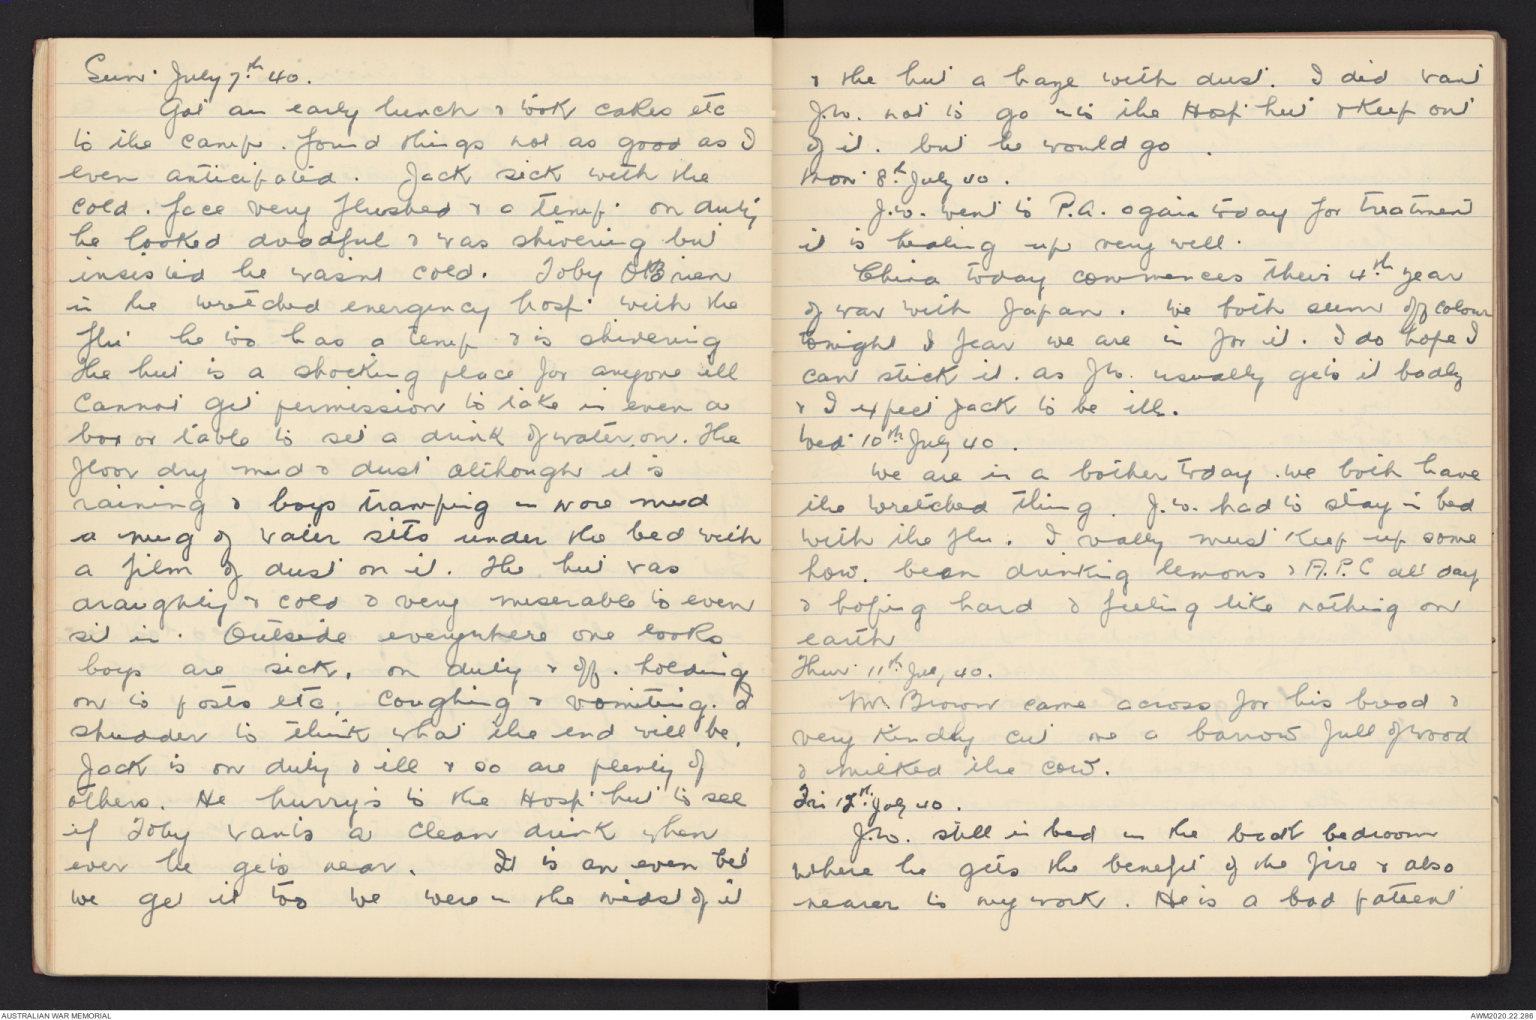 Sun. July 7th 40.
Got an early lunch & took cakes etc
to the camp. found things not as good as I
even anticipated. Jack sick with the
cold. face very flushed & a temp. on duty
he looked dreadful & was shivering but
insisted he wasnt cold. Toby O'Brien
in the wretched emergency hosp. with the
flu. he too has a temp & is shivering
the hut is a shocking place for anyone ill
cannot get permission to take in even a
box or table to set a drink of water on. The
floor dry mud & dust although it is
raining & boys tramping in more mud
a mug of water sits under the bed with
a film of dust on it. The hut was
draughty & cold & very miserable to even
sit in. Outside everywhere one looks
boys are sick, on duty & off. holding
on to posts etc, coughing & vomiting. I
shudder to think what the end will be.
Jack is on duty & ill & so are plenty of
others. He hurry's to the Hosp hut to see
if Toby wants a clean drink when
ever he gets near. It is an even bet
we get it too we were in the midst of it
& the hut a haze with dust. I did want
J.W. not to go into the Hosp hut & keep out
of it. but he would go.
Mon. 8th July 40.
J.W. went to P.A. again today for treatment
it is healing up very well.
China today commences their 4th year
of war with Japan. We both seem off colour
tonight I fear we are in for it. I do hope I
can stick it. as J.W. usually gets it badly
& I expect Jack to be ill.
Wed. 10th July 40.
We are in a bother today. we both have
the wretched thing. J.W. had to stay in bed
with the flu. I really must keep up some
how. been drinking lemons & A.P.C all day
& hoping hard & feeling like nothing on
earth
Thur. 11th July, 40.
Mr. Brown came across for his bread &
very kindly cut me a barrow full of wood
& milked the cow.
Fri 12th July 40.
J.W. still in bed in the back bedroom
where he gets the benefit of the fire & also
nearer to my work. He is a bad patient
AUSTRALIAN WAR MEMORIAL
AWM2020.22.286